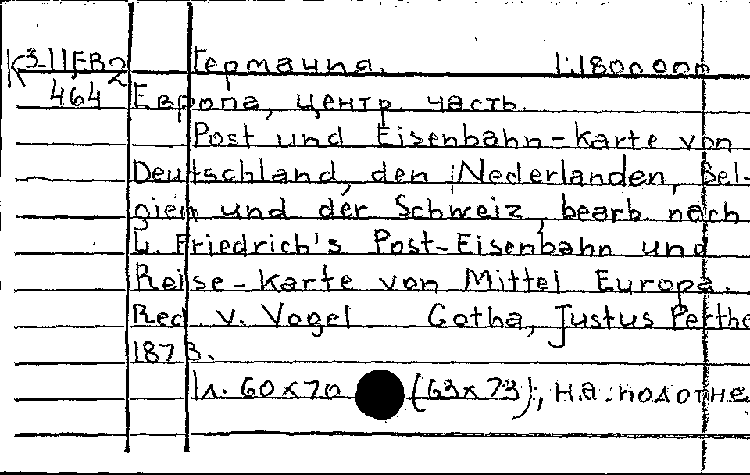 К3-11ЕВ2 Германия. 1:1800000
464 Европа, центр. часть.
Post und Eisenbahn-Karte von
Deutschland, den Nederlanden, Bel-
gien und der Schweiz, bearb. nach
L. Friedrich's Post-Eisenbahn und
Reise-Karte von Mittel Europa.
Red. v. Vogel Gotha, Justus Perthe
1873.
1л. 60x70 (63x73), на полотне.